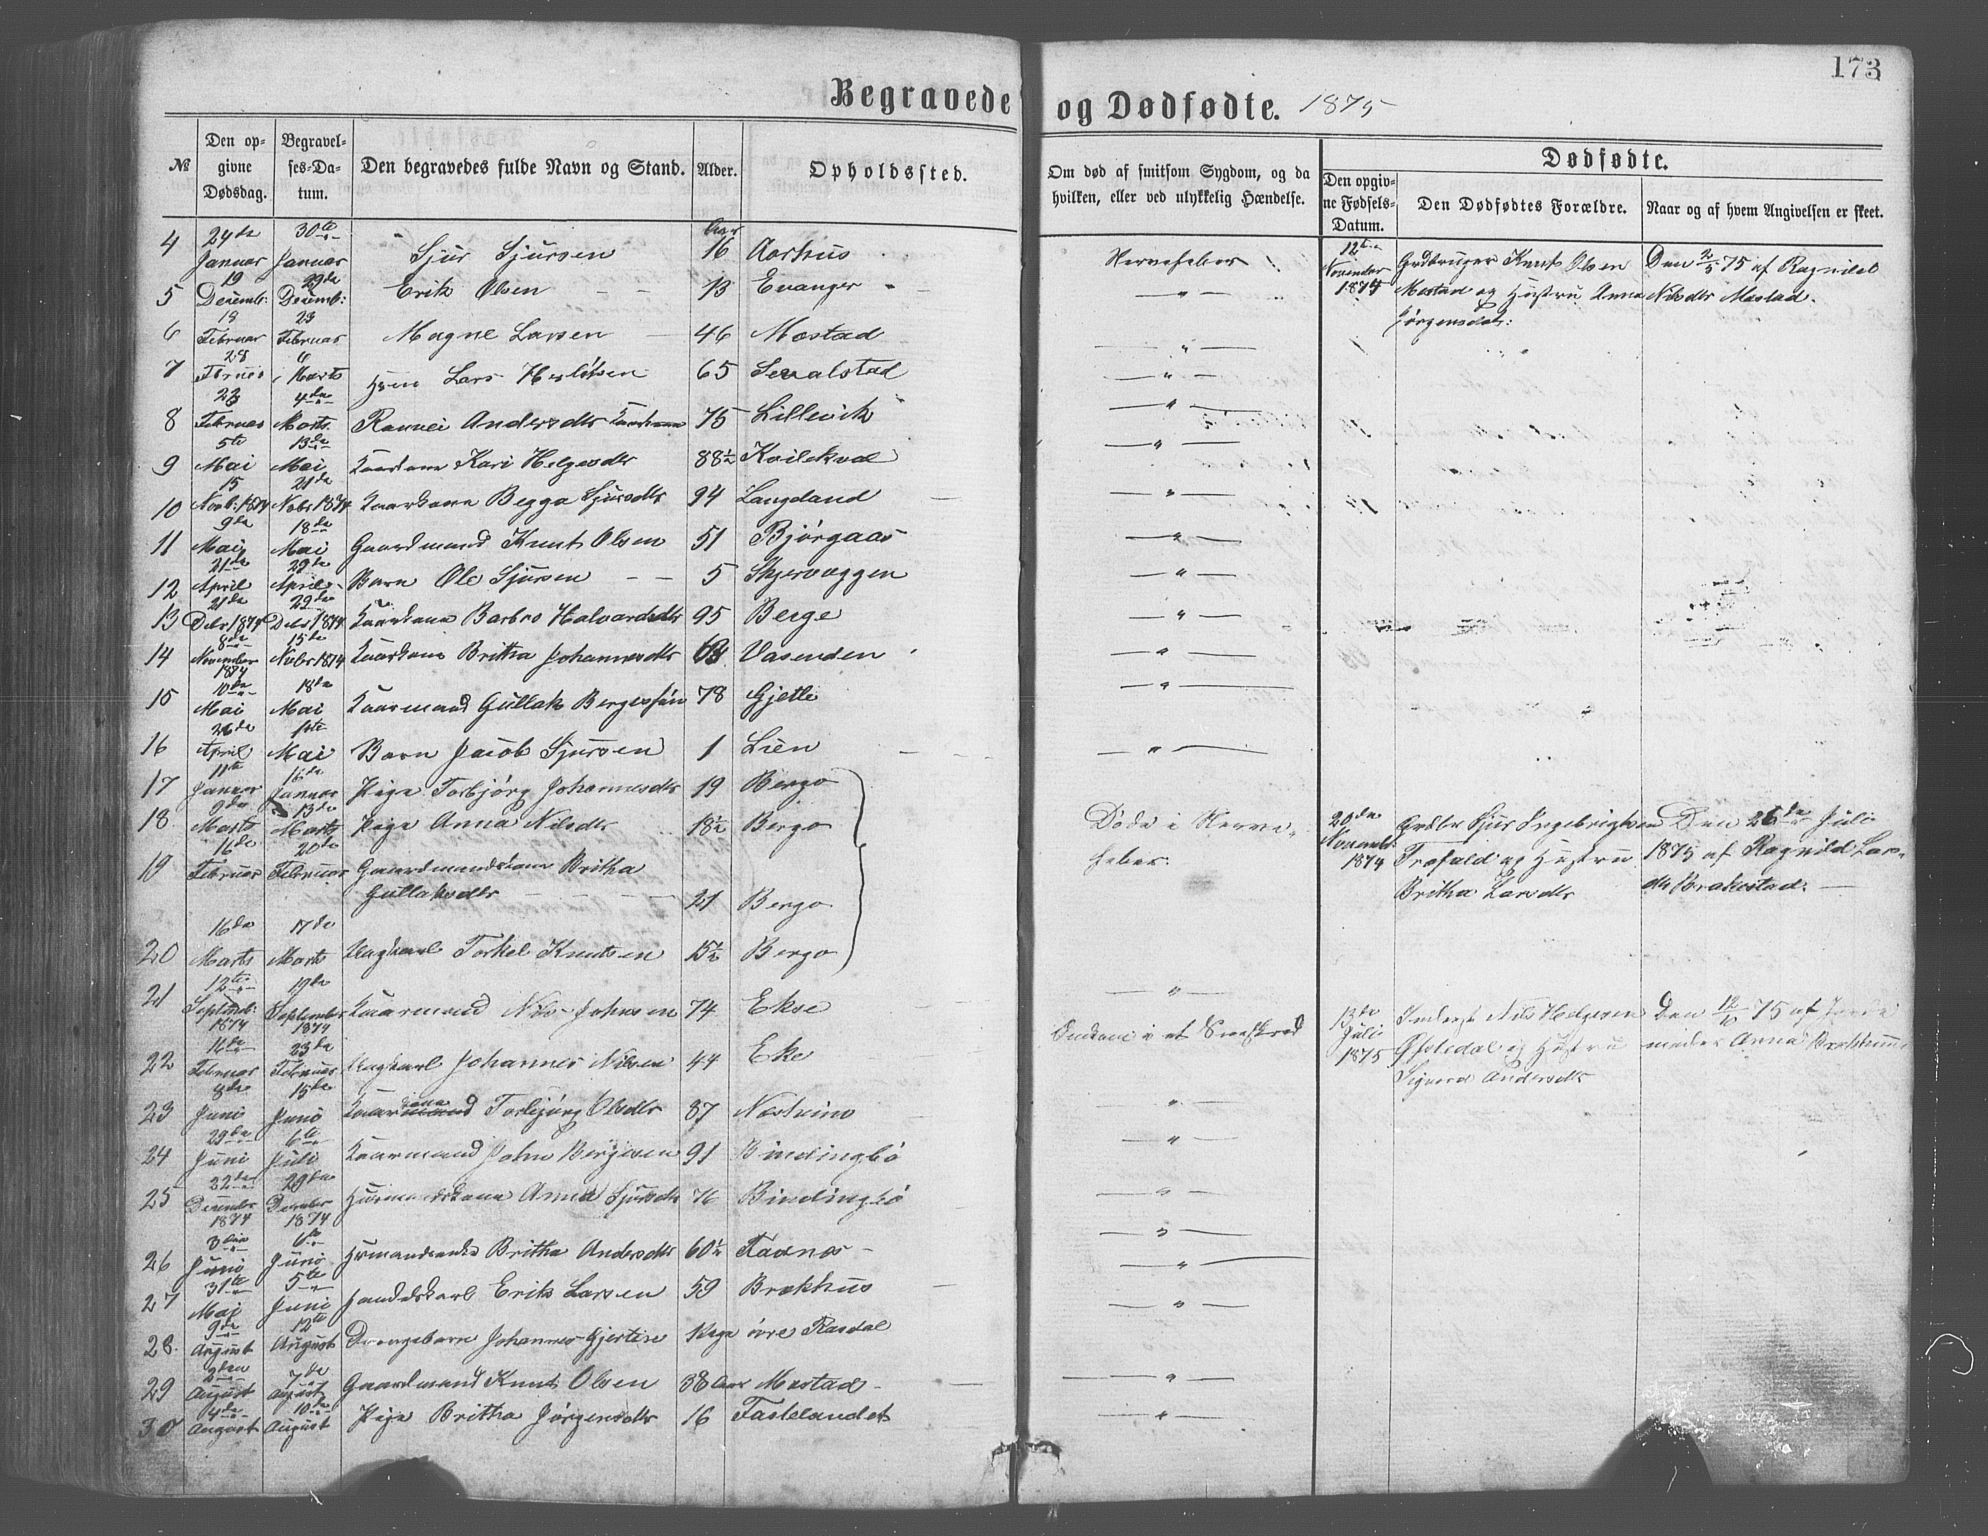 173
Begravede og Dødfødte. 1875
№
Den opgivne Dødsdag.
Begravelses-Datum.
Den begravedes fulde Navn og Stand.
Alder.
Opholdssted.
Om død af smitsom Sygdom, og da hvilken, eller ved ulykkelig Hændelse.
Dødfødte.
Den opgivne Fødsels-Datum.
Den Dødfødtes Forældre.
Naar og af hvem Angivelsen er skeet.
4 24de Januar 30te Januar Sjur Sjursen Aar 16 Aarhus Nervefeber
5 19 Decemb: 29de Decemb: Erik Olsen 13 Evanger — " —
6 19 Februar 23 Februar Magne Larsen 46 Mostad — " —
7 28 Februar 6 Marts Lars 65 — " —
8 23 Februar 4de Marts Ranvei Andersdtr Kaarkone 75 Lillevik — " —
9 5te Mai 13de Mai Kaarkone Kari Helgesdtr 88½ Kvilekval — " —
10 15 Novb: 1874 21de Nobr 1874 Kaarkone Begga Sjursdtr 94 Langeland — " —
11 9de Mai 18de Mai Gaardmand Knut Olsen 51 Bjørgaas — " —
12 21de April 29de April Barn Ole Sjursen 5 Skjervæggen — " —
13 21de Debr 1874 29de Debr 1874 Kaarkone Barbro Halvardsdtr 95 Berge — " —
14 8de November 1874 15de Nobr 1874 Kaarkone Britha Johannesdtr 63 Vasenden — " —
15 10de Mai 18de Mai Kaarmand Gullak Bergesøn 78 Gjetle — " —
16 26de April 1ste Mai Barn Jacob Sjursen 1 Lien — " —
17 11te Januar 16de Januar Pige Torbjørg Johannesdtr 19 Bergo
18 9de Marts 13de Marts Pige Anna Nilsdtr 18½ Bergo Døde i Nerve-
19 16de Februar 20de Februar Gaardmandskone Britha feber.
Gullaksdtr 21 Bergo
20 16de Marts 17de Marts Ungkarl Torkel Knutsen 15½ Bergo
21 12te Septemb: 1874 19de September 1874 Kaarmand Nils Johnsen 74 Ekse — " —
22 16de Februar 23de Februar Ungkarl Johannes Nilsen 44 Eke Omkom i et Sneskred
23 8de Juni 15de Juni Kaarkone Torbjørg Olsdtr 87 — " —
24 29de Juni 6te Juli Kaarmand John Bergesen 91 Bindingbø — " —
25 22de December 1874 29de December 1874 Anna Sjursdtr 76 Bindingbø — " —
26 3die Juni 6te Juni Britha Andersdtr 60½ Fadnes — " —
27 31te Mai 5te Juni Erik Larsen 59 Brækhus — " —
28. 9de August 12te August Drengebarn Johannes Gjertsen øvre Rasdal — " —
29 2den August 7de August Gaardmand Knut Olsen 38 Aar Mostad — " —
30 4de August 10de August Pige Britha Jørgensdtr 16 Fastelandet — " —
12te November 1874
Grdbruger Knut Olsen
Mostad og Hustru Anna
Jørgensdatr:
Den 2/5 75 af Ragnilda
Nilsdtr Mostad.
20de Novemb: 1874
Sjur Ingebrigtsen
Trofald og Hustru
Britha Larsdtr
Den 26de Juli
1875 af Ragnild Lars-
dtr Brakestad.
13de Juli 1875
Inderst Nils Helgesen
og Hustru
Sigvora Andersdtr
Den 12/10 75 af Jorde-
moder Anna Brækhus